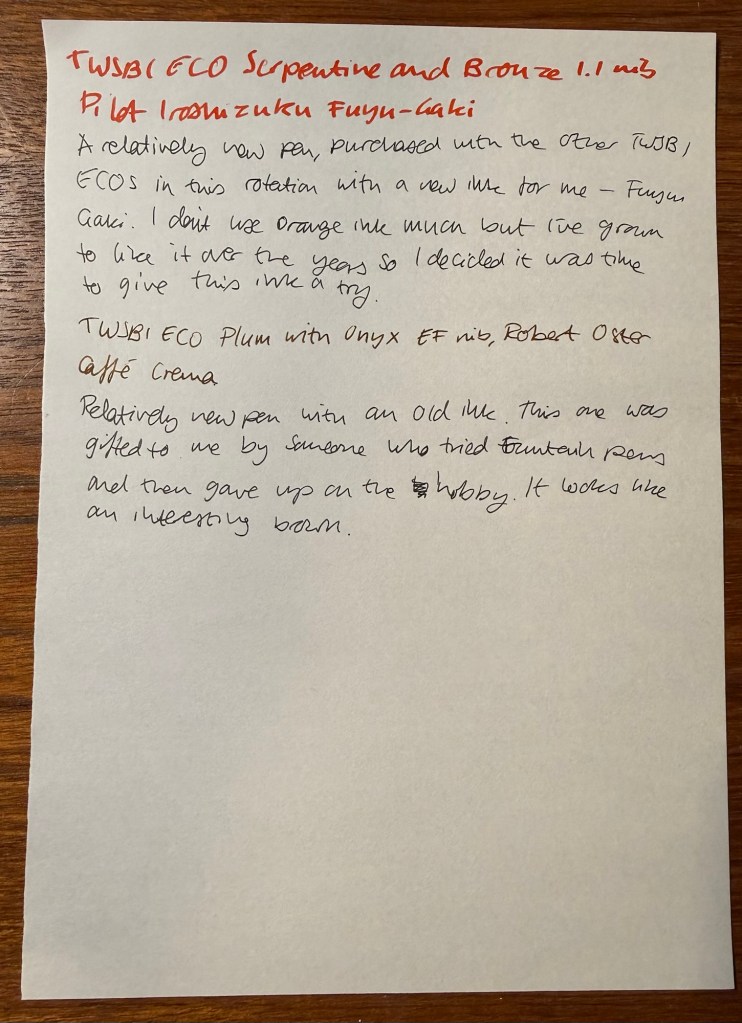 TWSBI ECO Serpentine and Bronze 1.1 nib
Pilot Iroshizuku Fuyu-Gaki
A relatively new pen, purchased with the other TWSBI
ECOS in this rotation with a new ink for me – Fuyu
Gaki. I don't use orange ink much but I've grown
to like it over the years so I decided it was time
to give this ink a try.
TWSBI ECO Plum with Onyx EF nib, Robert Oster
Caffé Crema
Relatively new pen with an old ink. This one was
gifted to me by someone who tried fountain pens
and then gave up on the hobby. It looks like
an interesting brown.